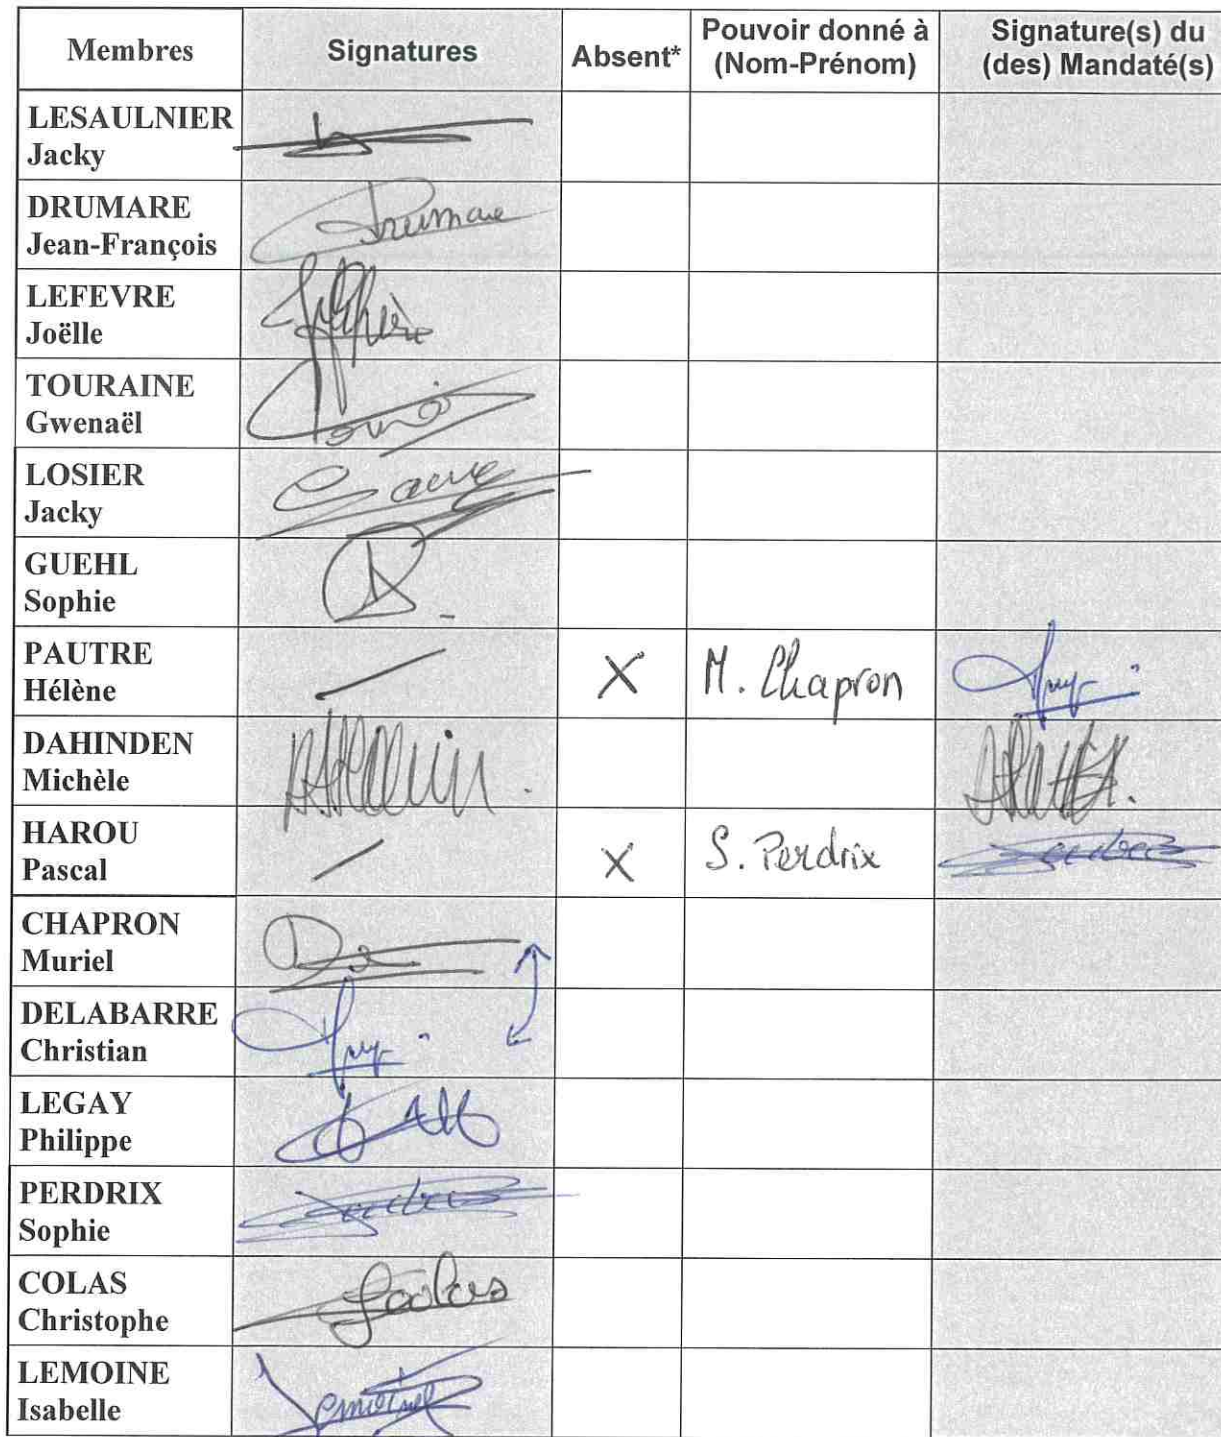 Membres
Signatures
Absent*
Pouvoir donné à
(Nom-Prénom)
Signature(s) du
(des) Mandaté(s)
LESAULNIER
Jacky
DRUMARE
Jean-François
Drumare
LEFEVRE
Joëlle
TOURAINE
Gwenaël
LOSIER
Jacky
GUEHL
Sophie
PAUTRE
Hélène
X
M. Chapron
DAHINDEN
Michèle
HAROU
Pascal
X
S. Perdrix
CHAPRON
Muriel
DELABARRE
Christian
LEGAY
Philippe
PERDRIX
Sophie
COLAS
Christophe
LEMOINE
Isabelle